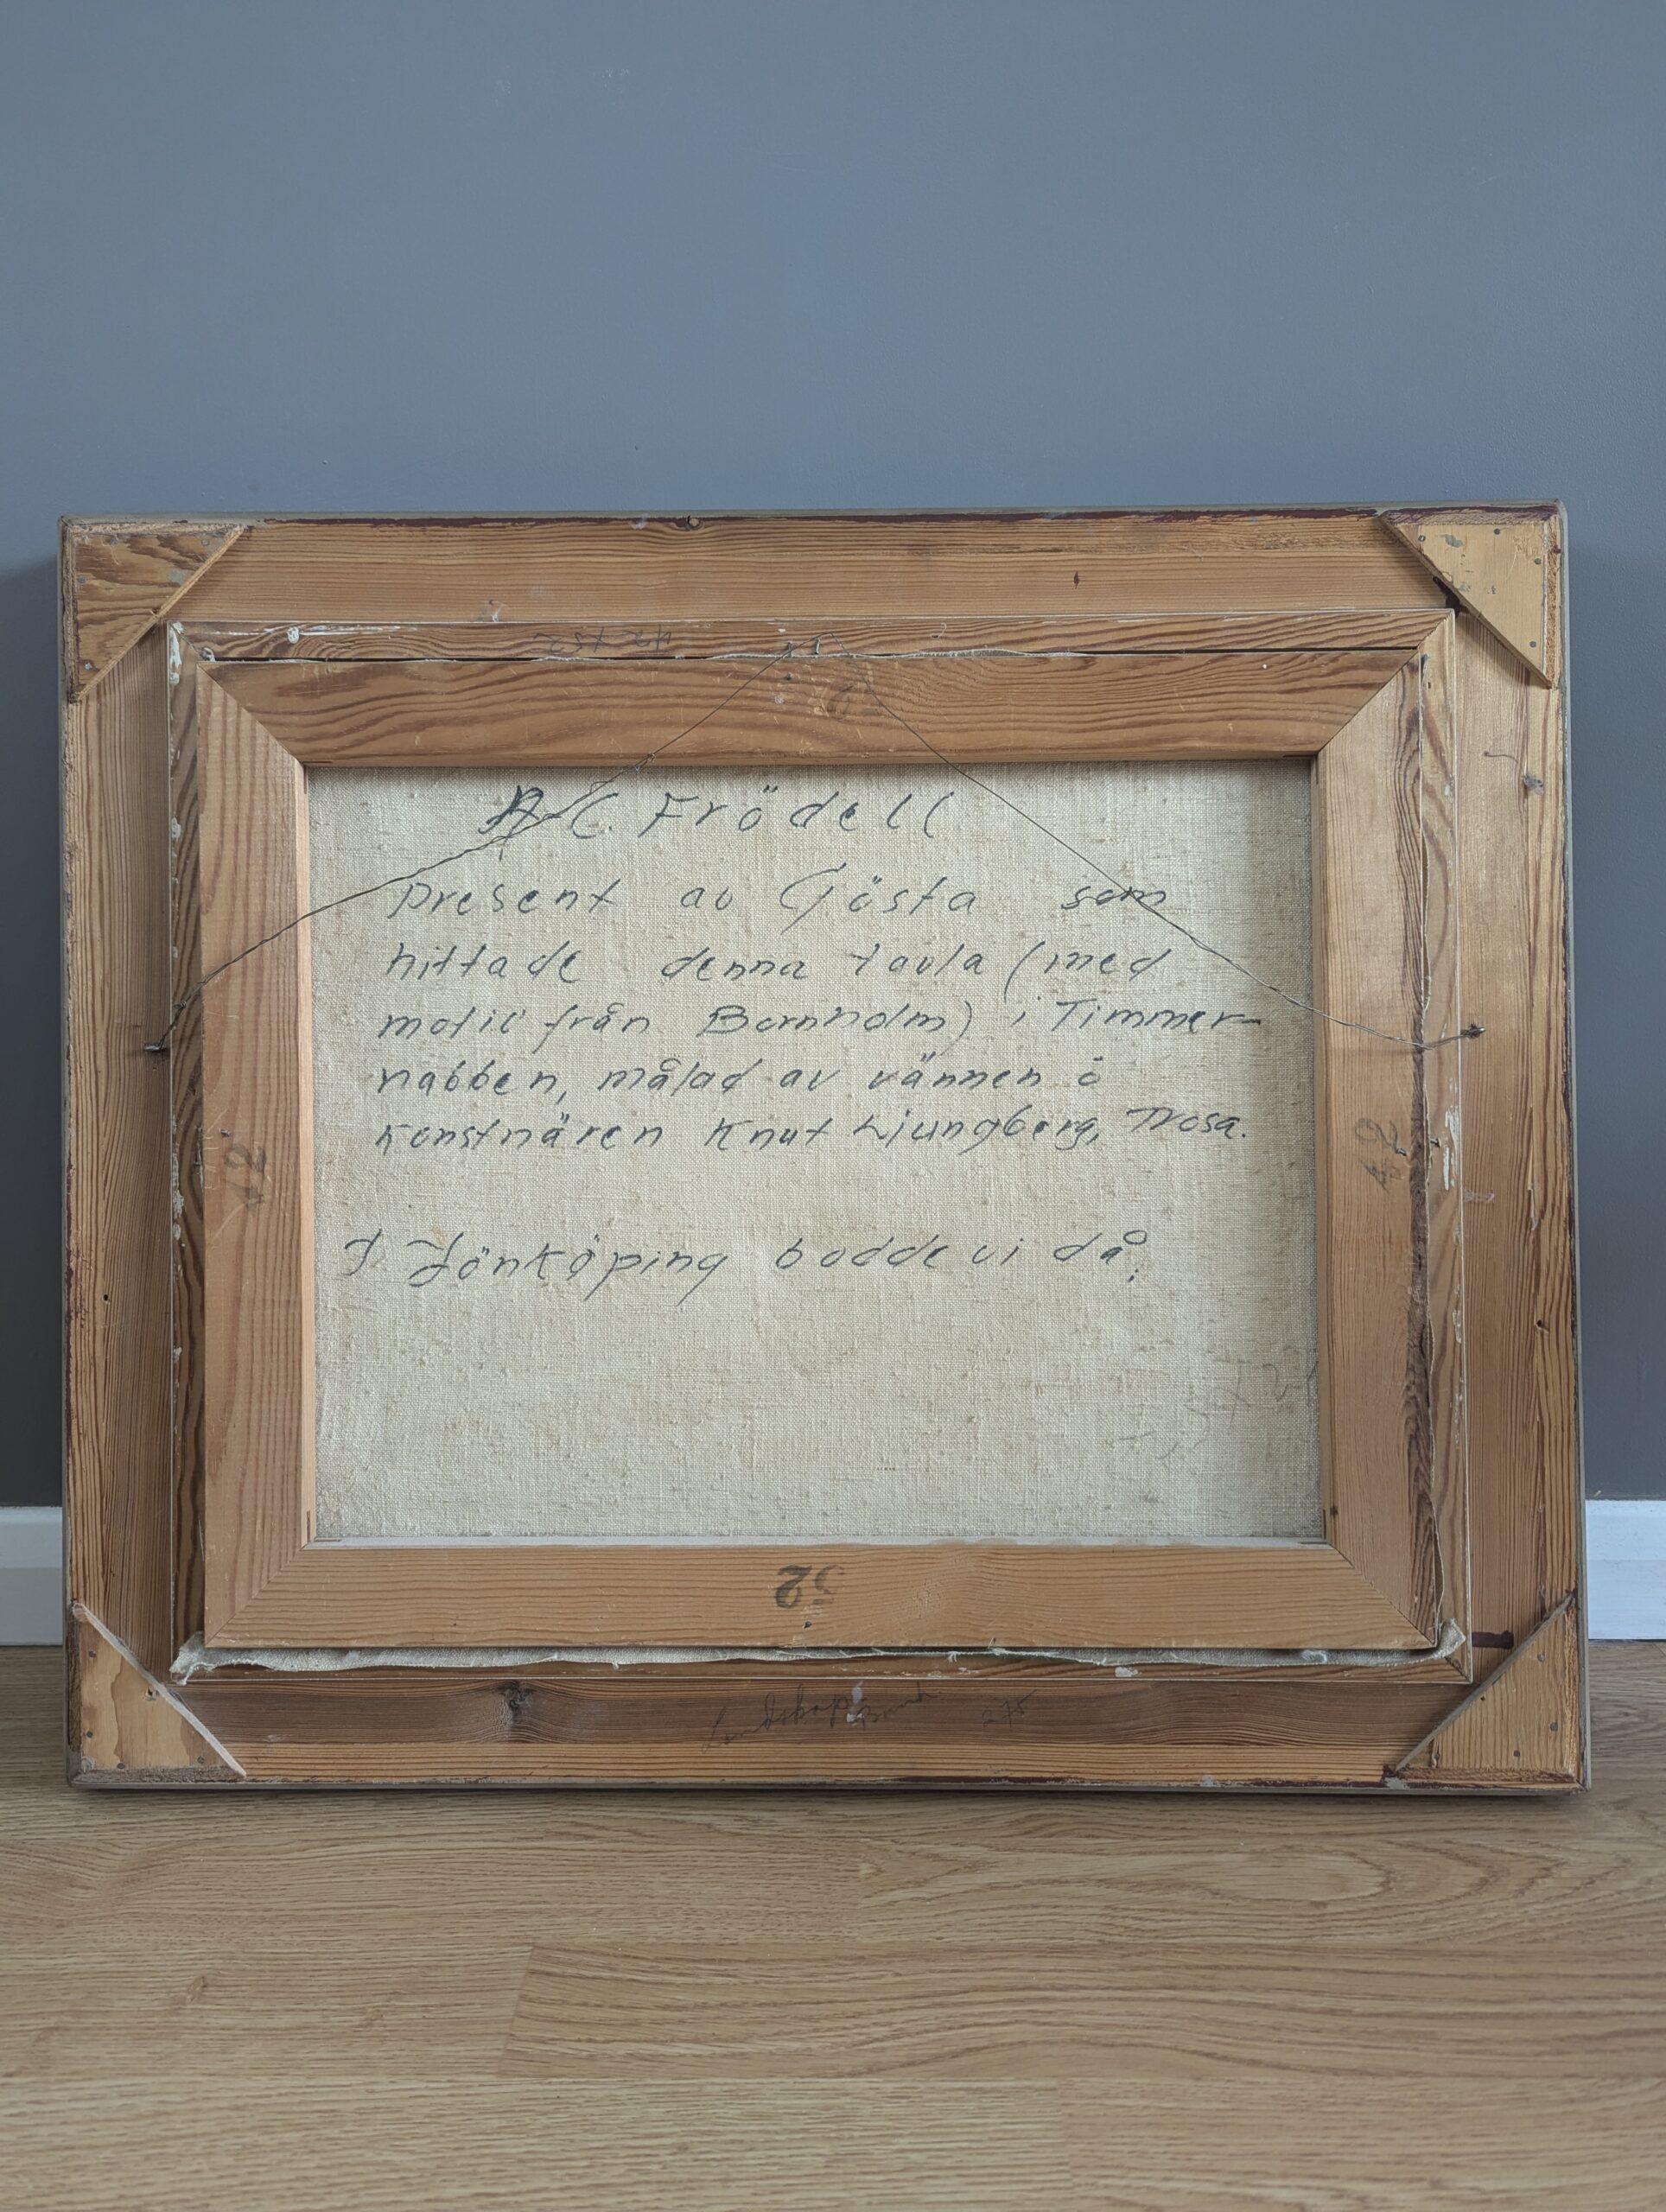 42 x 52
C. Frödell
present av Gösta som
hittade denna tavla (med
motiv från Bornholm) i Timmer-
nabben, målad av vännen o
konstnären Knut Ljungberg, Trosa.
I Jönköping bodde vi då.
42
42
52
Landskap 275